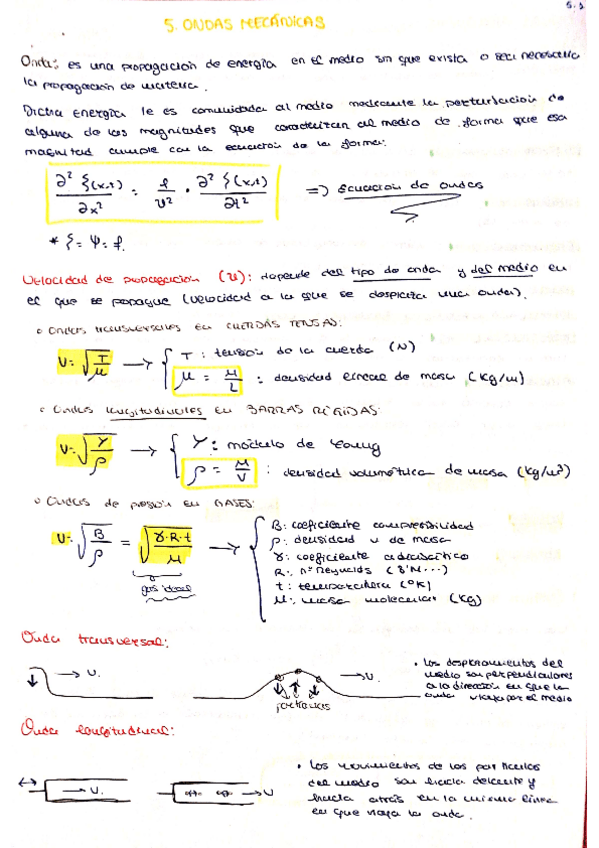 5.1
5. ONDAS MECÁNICAS
Onda: es una propagación de energía en el medio sin que exista o sea necesaria
la propagación de materia.
Dicha energía le es comunicada al medio mediante la perturbación de
alguna de las magnitudes que caracterizan al medio de forma que esa
magnitud cumple con la ecuación de la forma:
∂² ξ(x,t) / ∂x² = 1/v² · ∂² ξ(x,t) / ∂t² => Ecuación de ondas
* ξ = Ψ = f.
Velocidad de propagación (v): depende del tipo de onda y del medio en
el que se propague (velocidad a la que se desplaza una onda).
o Ondas transversales en CUERDAS TENSAS:
v = √(T/μ) → { T: tensión de la cuerda (N)
μ = M/L : densidad lineal de masa (kg/m)
o Ondas longitudinales en BARRAS RÍGIDAS:
v = √(Y/ρ) → { Y: módulo de Young
ρ = M/V : densidad volumétrica de masa (kg/m³)
o Ondas de presión en GASES:
v = √(B/ρ) = √(γ·R·t/M) → { B: coeficiente compresibilidad
ρ: densidad v de masa
γ: coeficiente adiabático
R: nº Reynolds (8'31...)
t: temperatura (ºK)
M: masa molecular (kg)
gas ideal
Onda transversal:
→ v.
→ v.
partículas
• Los desplazamientos del
medio son perpendiculares
a la dirección en que la
onda viaja por el medio
Onda longitudinal:
→ v.
→ v
• Los movimientos de las partículas
del medio son hacia delante y
hacia atrás en la misma línea
en que viaja la onda.